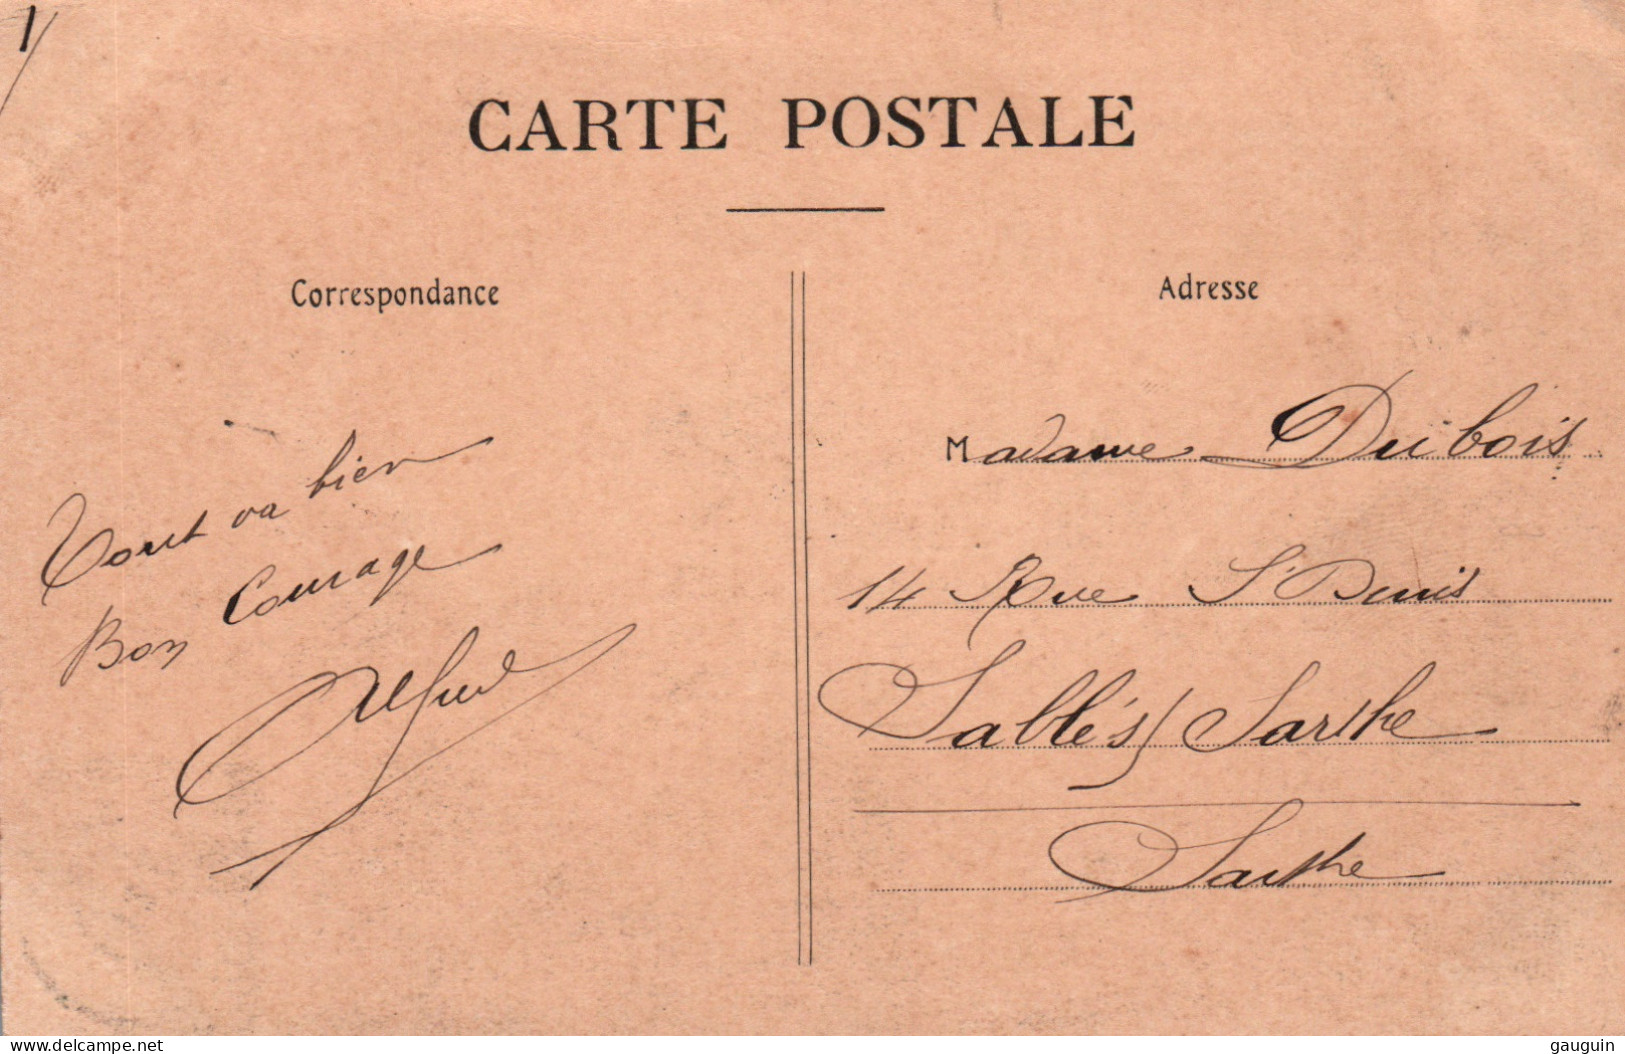 CARTE POSTALE
Correspondance
Adresse
Tout va bien
Bon Courage
Alfred
Madame Dubois
14 Rue St Denis
Sablés s/ Sarthe
Sarthe
www.delcampe.net
gauguin